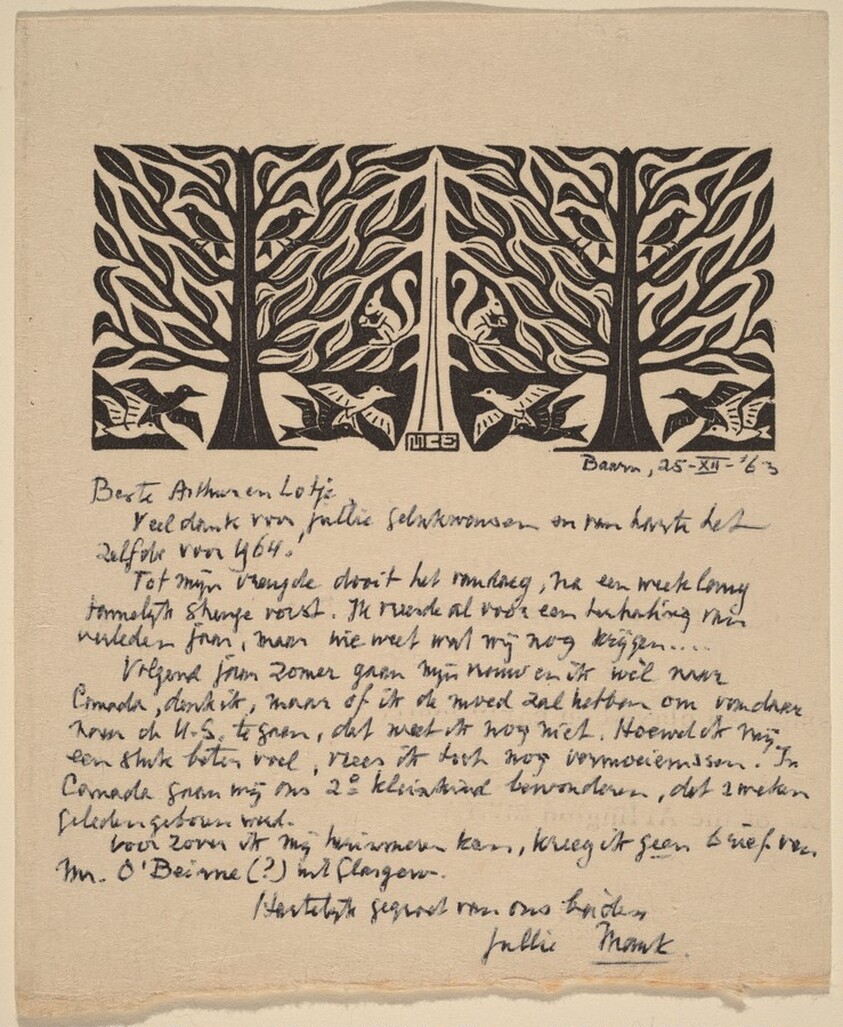 MCE
Baarn, 25-XII-'63
Beste Arthur en Lotje,
Veel dank voor jullie gelukwensen en van harte het
zelfde voor 1964.
Tot mijn vreugde dooit het vandaag, na een week lang
tamelijk strenge vorst. Ik vreesde al voor een herhaling van
verleden jaar, maar wie weet wat wij nog krijgen....
Volgend jaar zomer gaan mijn vrouw en ik wel naar
Canada, denk ik, maar of ik de moed zal hebben om vandaar
naar de U.S. te gaan, dat weet ik nog niet. Hoewel ik mij
een stuk beter voel, vrees ik toch nog vermoeienissen. In
Canada gaan wij ons 2e kleinkind bewonderen, dat 2 weken
geleden geboren werd.
Voor zover ik mij herinneren kan, kreeg ik geen brief van
Mr. O'Beirne (?) uit Glasgow.
Hartelijk gegroet van ons beiden
Jullie Mauk.